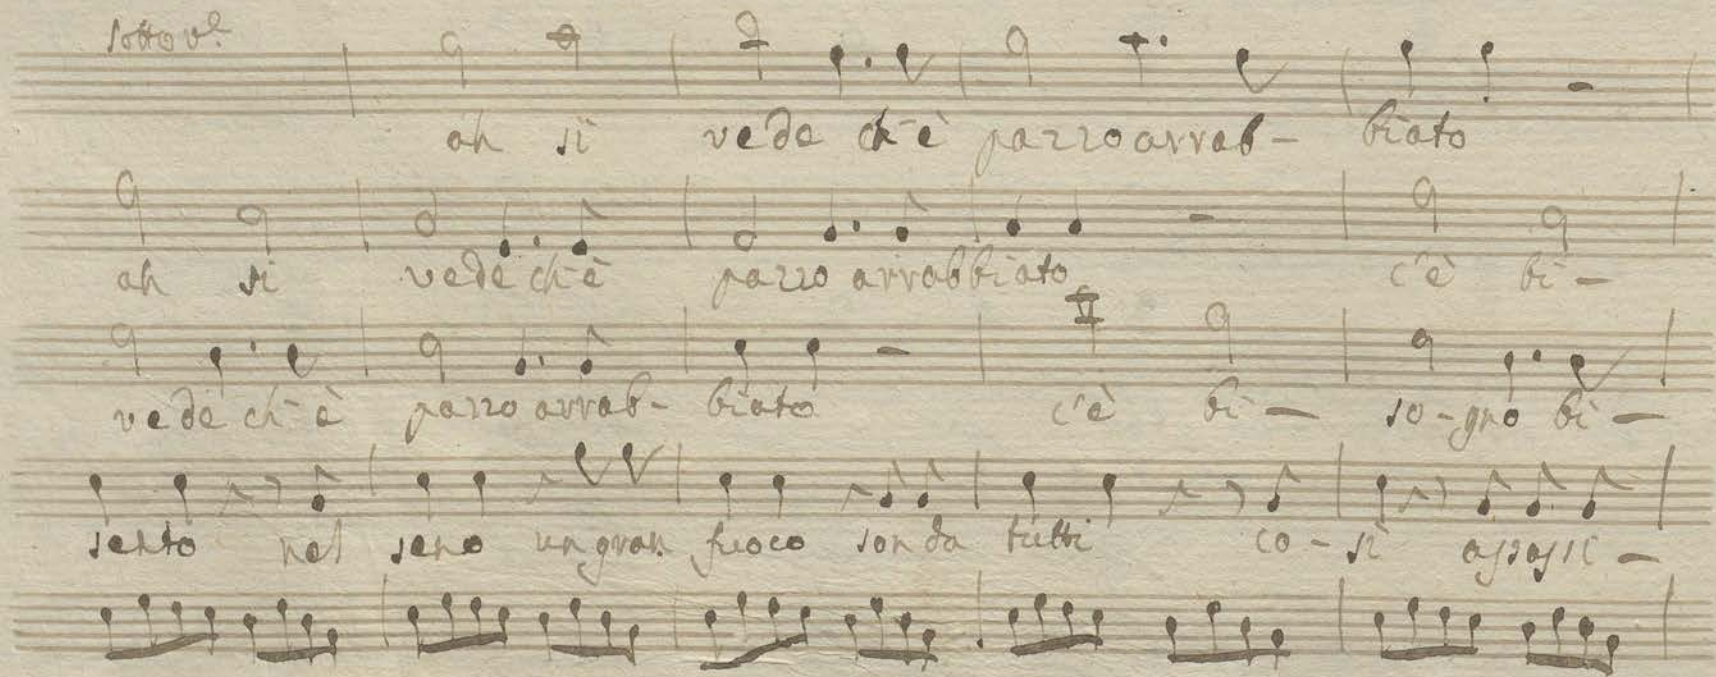 sotto v.e
ah sì vede ch'è pazzo arrab- biato
ah si vede ch'è pazzo arrabbiato c'è bi-
vede ch'è pazzo arrab- biato c'è bi- so-gno bi-
sento nel seno un gran fuoco son da tutti co-sì assassi-